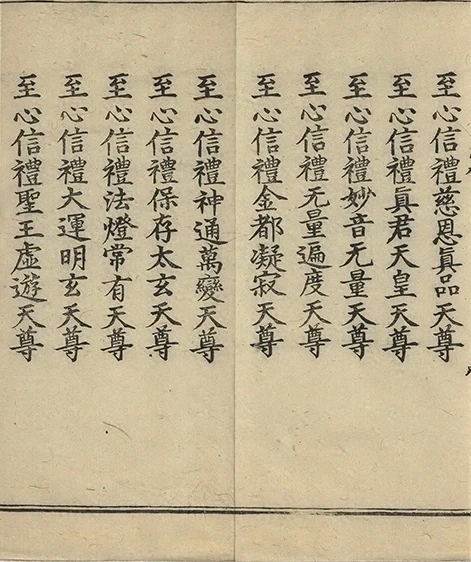 至心信禮慈恩眞品天尊
至心信禮眞君天皇天尊
至心信禮妙音无量天尊
至心信禮无量遍度天尊
至心信禮金都凝寂天尊
至心信禮神通萬變天尊
至心信禮保存太玄天尊
至心信禮法燈常有天尊
至心信禮大運明玄天尊
至心信禮聖王虛遊天尊